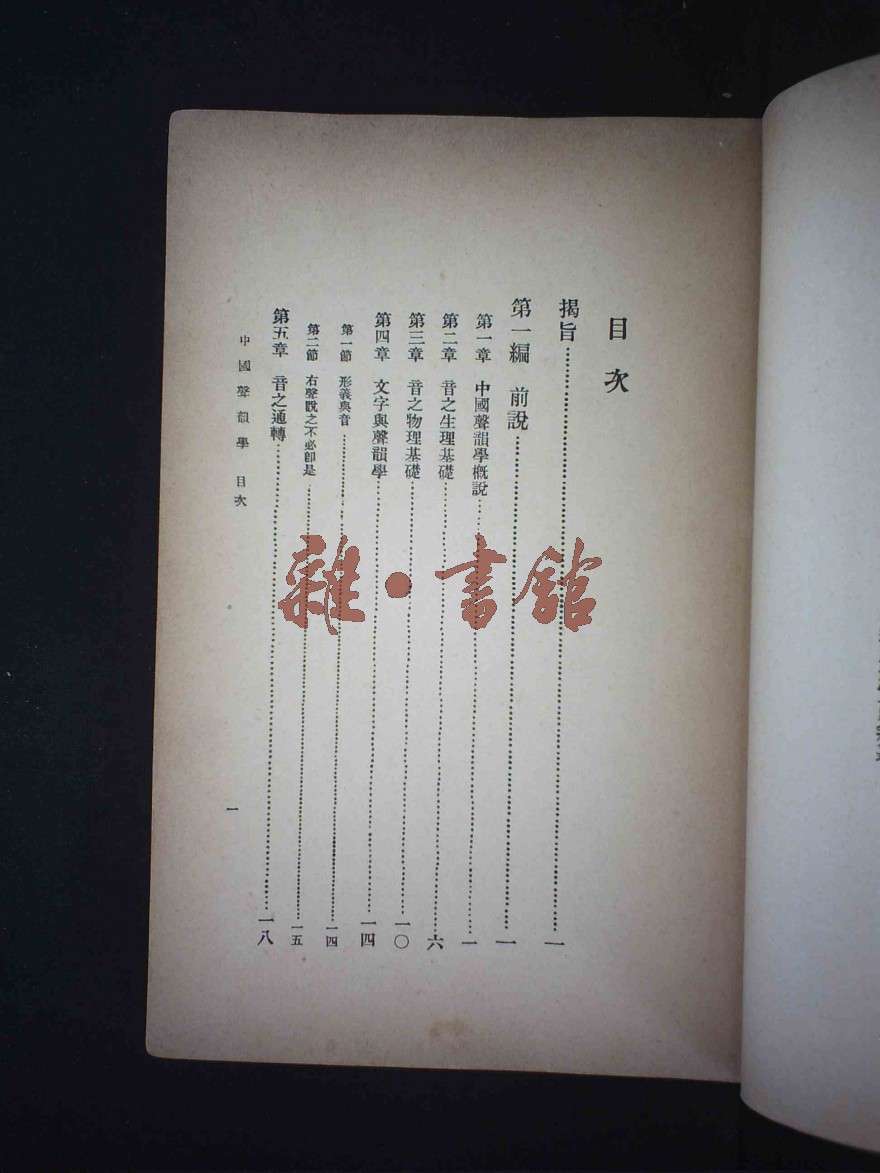 目次
揭旨……一
第一編 前說……一
第一章 中國聲韻學概說……一
第二章 音之生理基礎……六
第三章 音之物理基礎……一〇
第四章 文字與聲韻學……一四
第一節 形義與音……一四
第二節 右聲說之不必卽是……一五
第五章 音之通轉……一八
中國聲韻學 目次
一
雜·書館